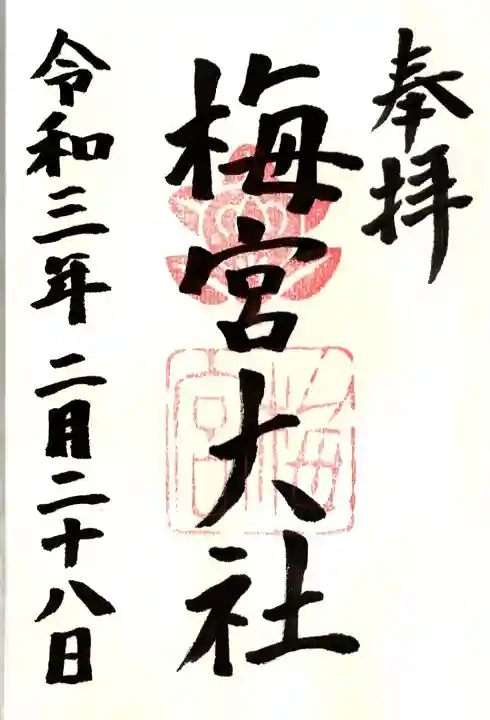 奉拝
梅宮大社
梅宮
令和三年二月二十八日